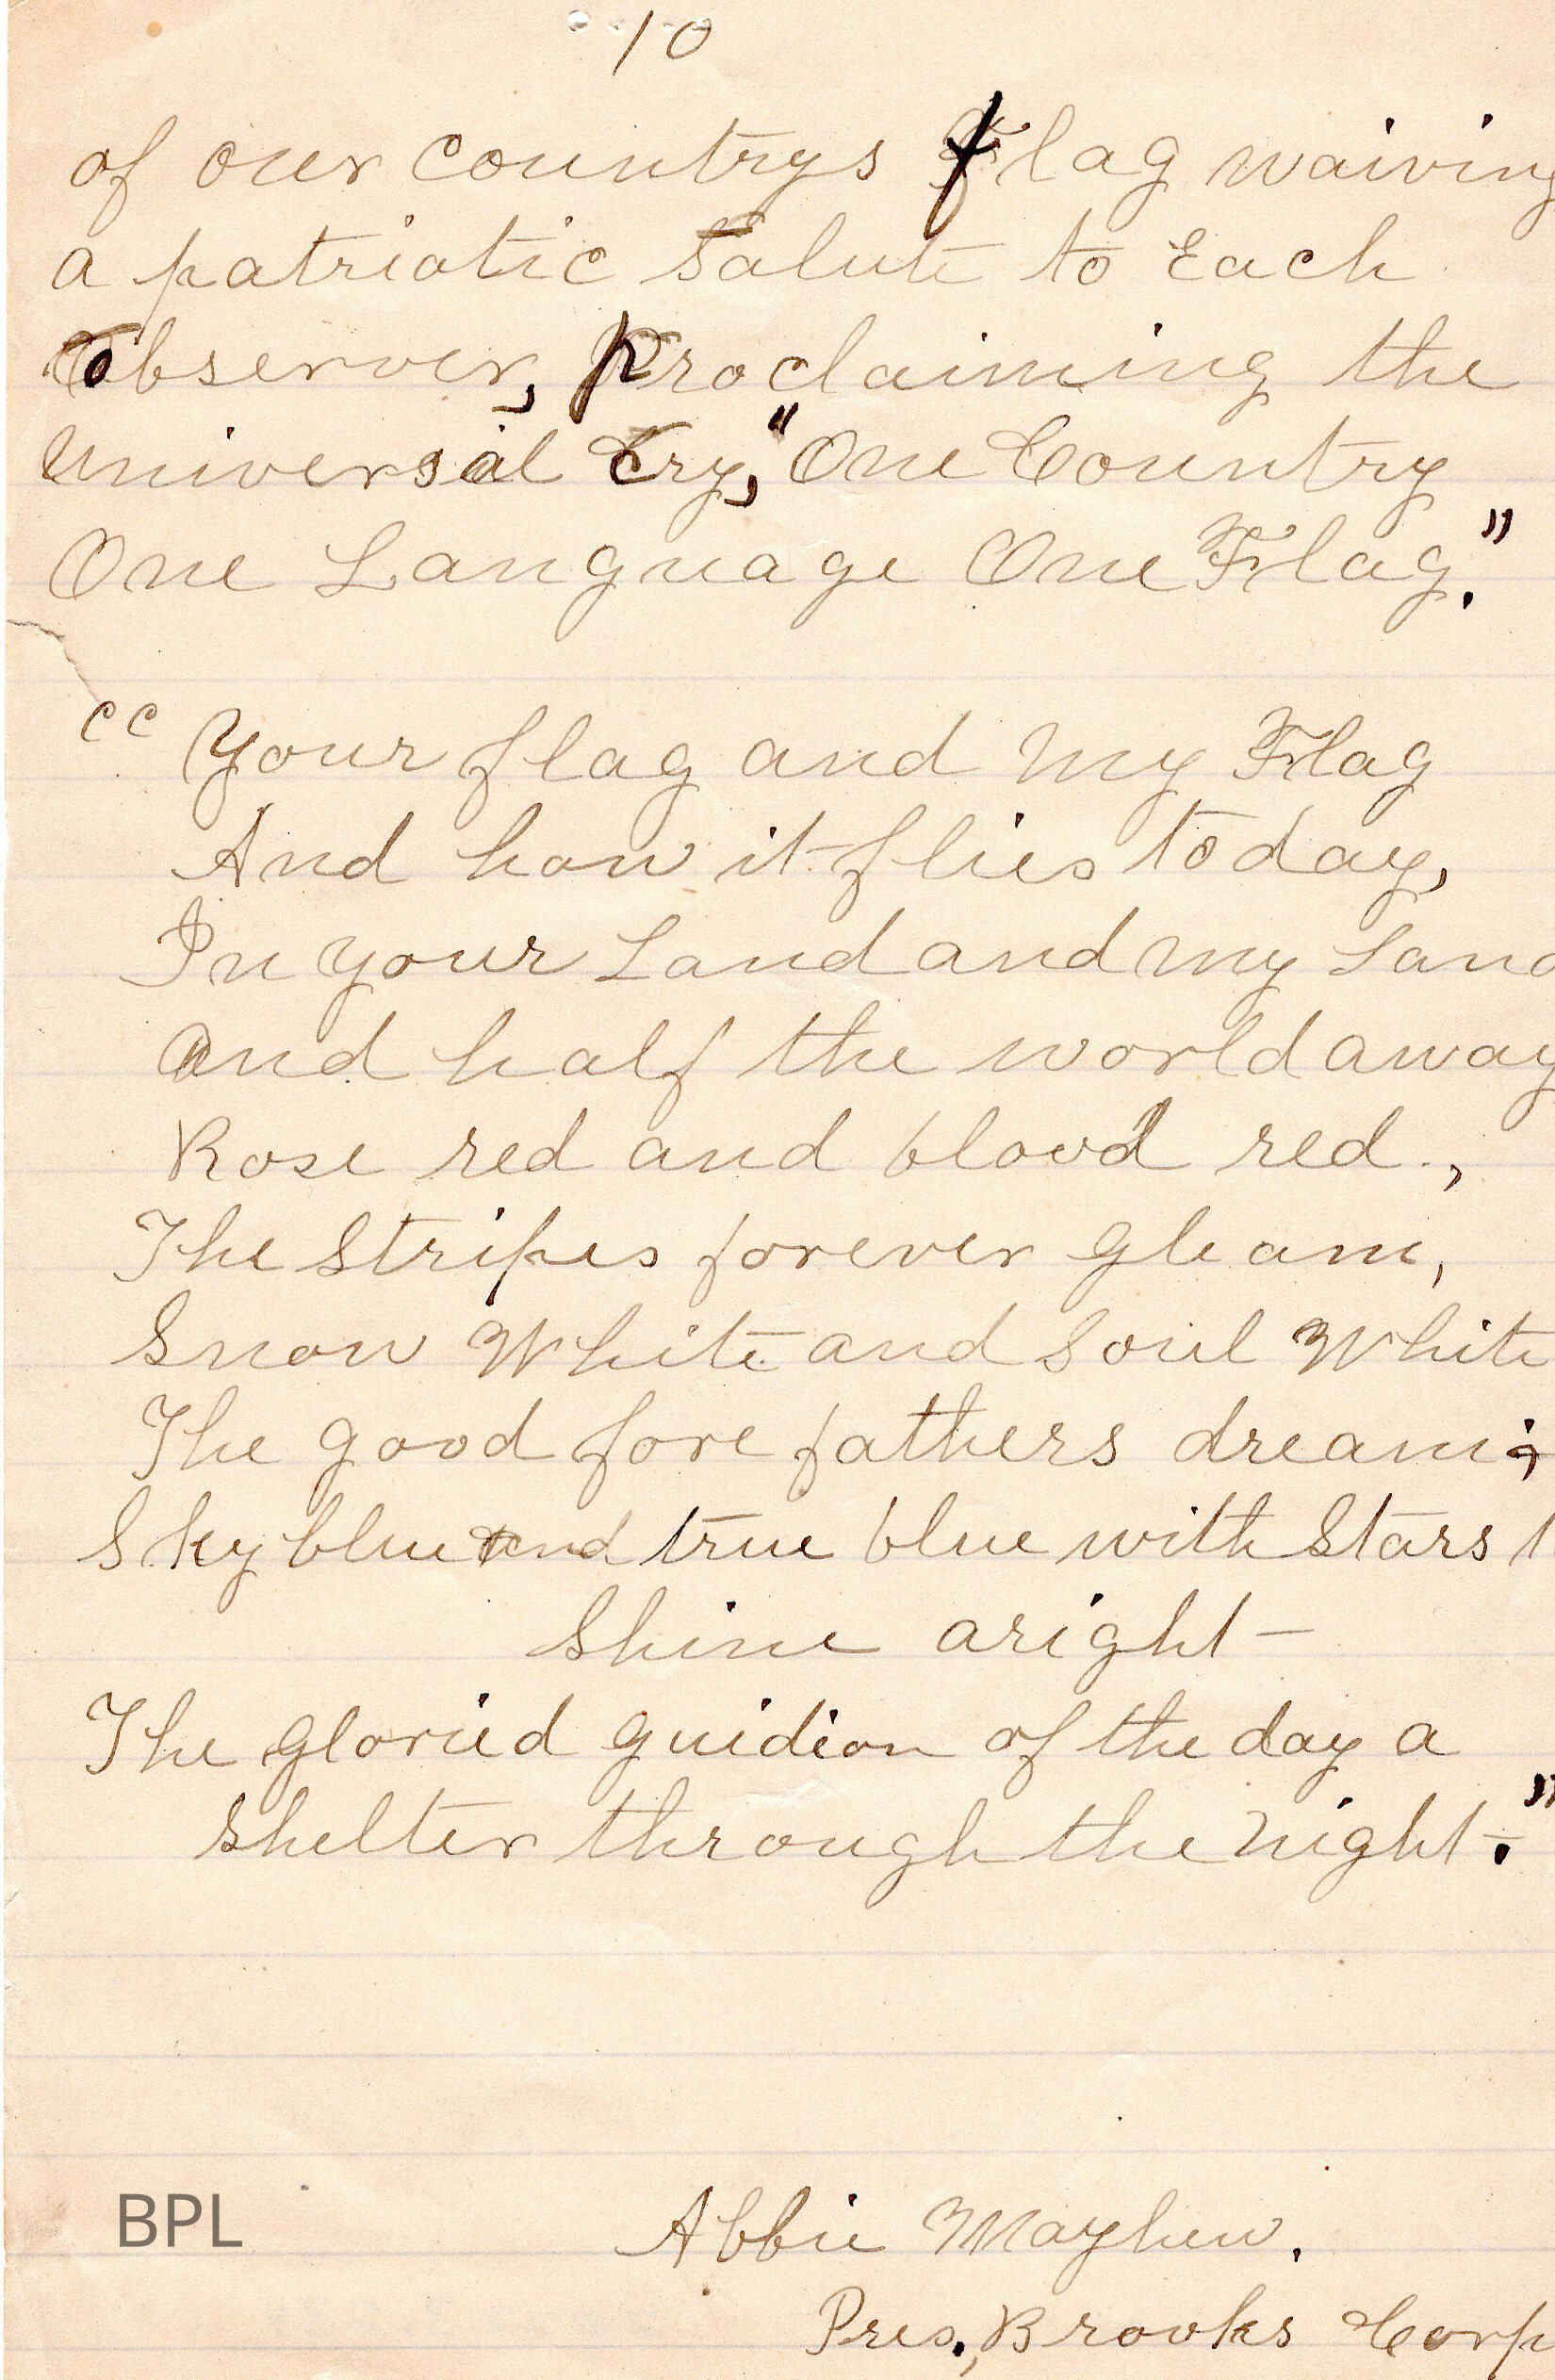 10
of our countrys flag waiving
a patriotic salute to Each
observer, proclaiming the
universal cry, "One Country
One Language One Flag."
"Your flag and my Flag
And how it flies today,
In your Land and my Land
And half the world away
Rose red and blood red.,
The Stripes forever gleam,
Snow White and Soul White
The good fore fathers dream;
Sky blue and true blue with Stars
Shine aright—
The gloried guidion of the day a
shelter through the night."
BPL
Abbie Mayhew.
Pres., Brooks Corp